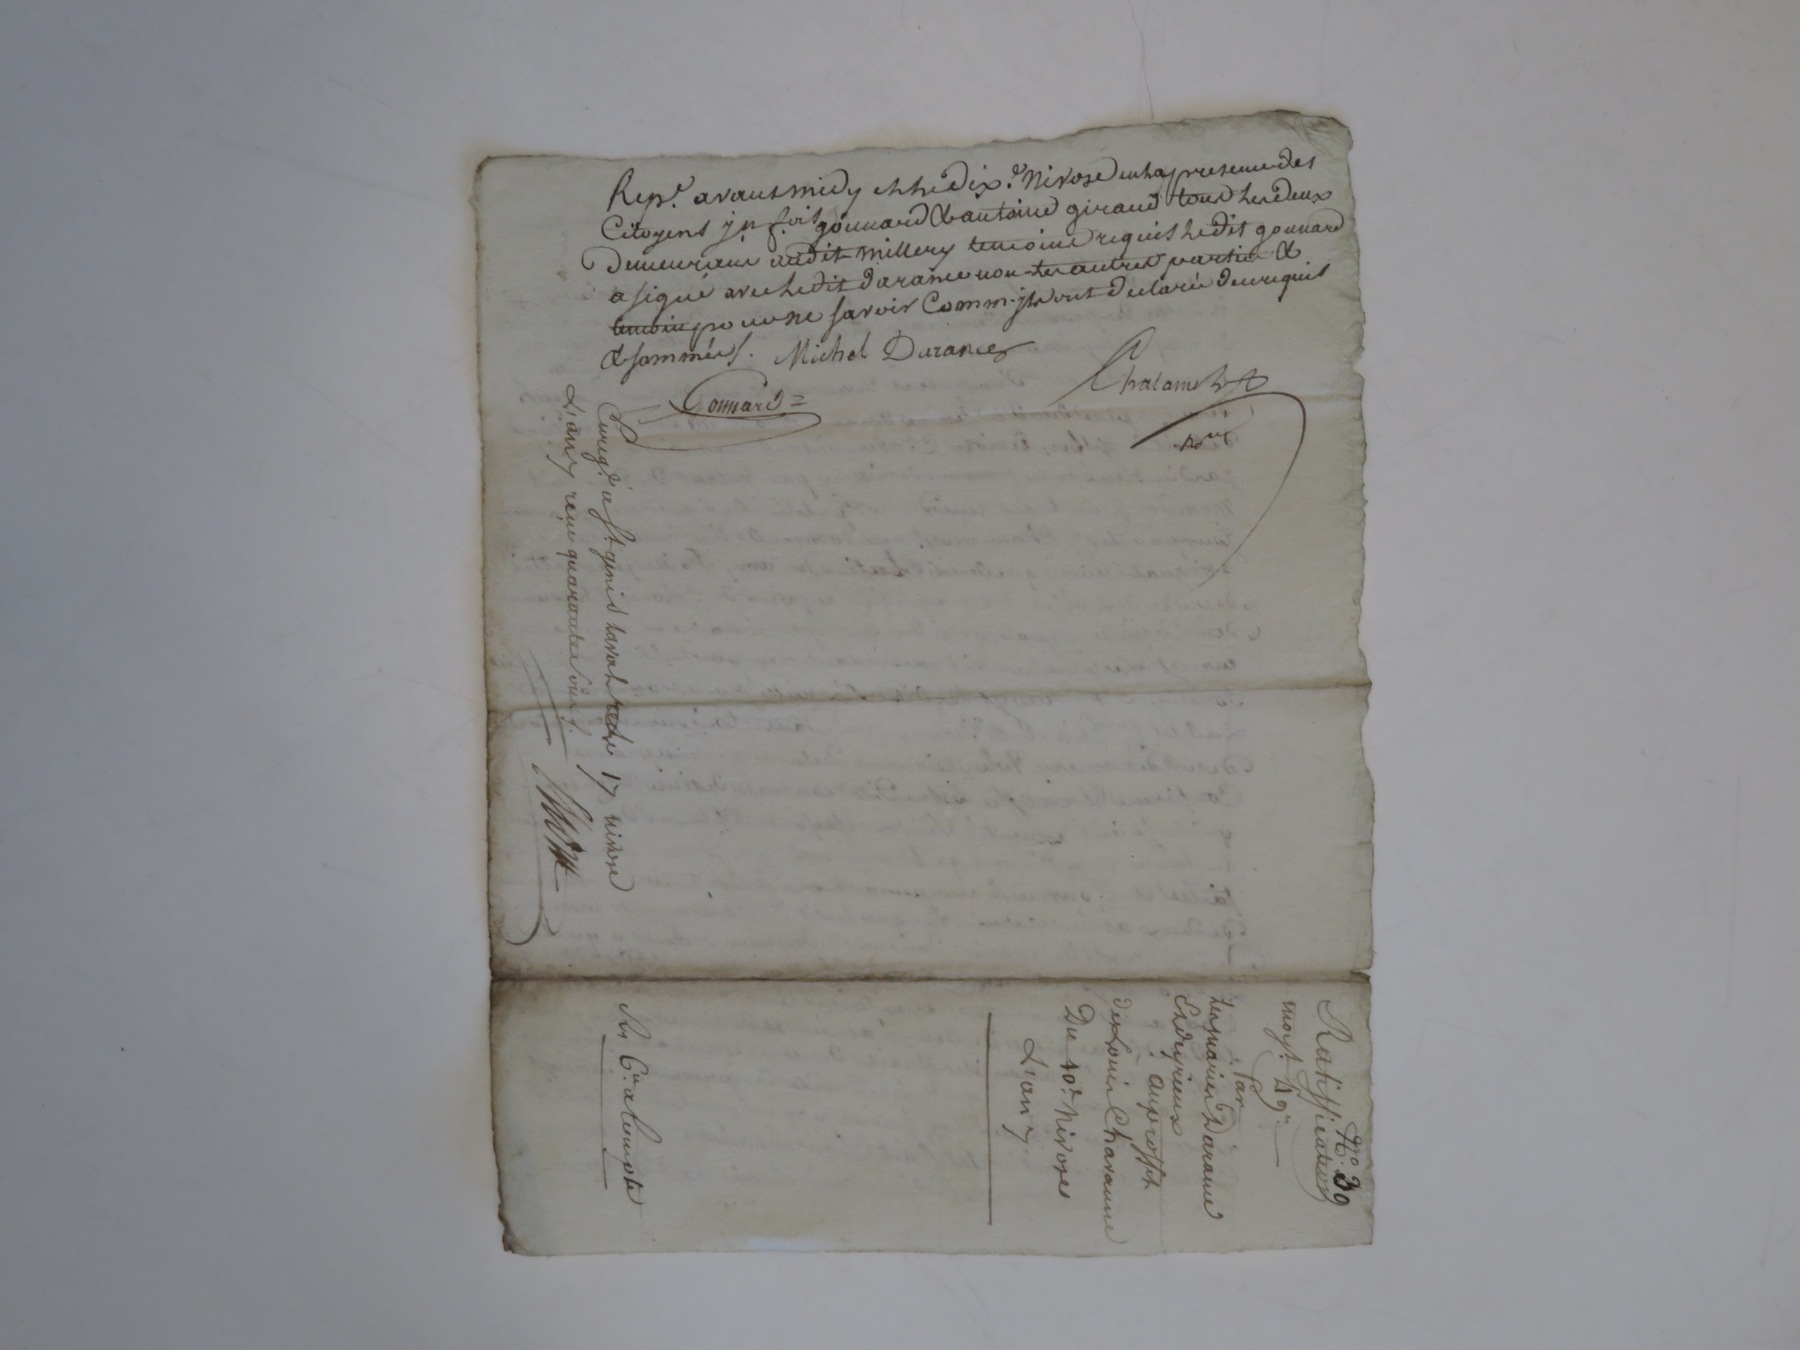 Rep.e avant midy & le dix.e Nivose en la presence des
Citoyens jn fois gounard & antoine giraud tous les deux
demeurant audit Millery temoins requis ledit gounard
a signé avec ledit darance non les autres partie &
temoin pour ne savoir Comm. jls ont declarée de ce requis
& sommées. Michel Durance
Gounard = Chalamel
nre
Enreg.é à St genis laval le 17 nivose
L'an 7 reçu quarante sous
N.o 39
Ratiffication
moy.t 49.
Par
les mariés Darance
Et deyrieux
auproffit
de Louis Charanne
Du 10.e Nivose
L'an 7